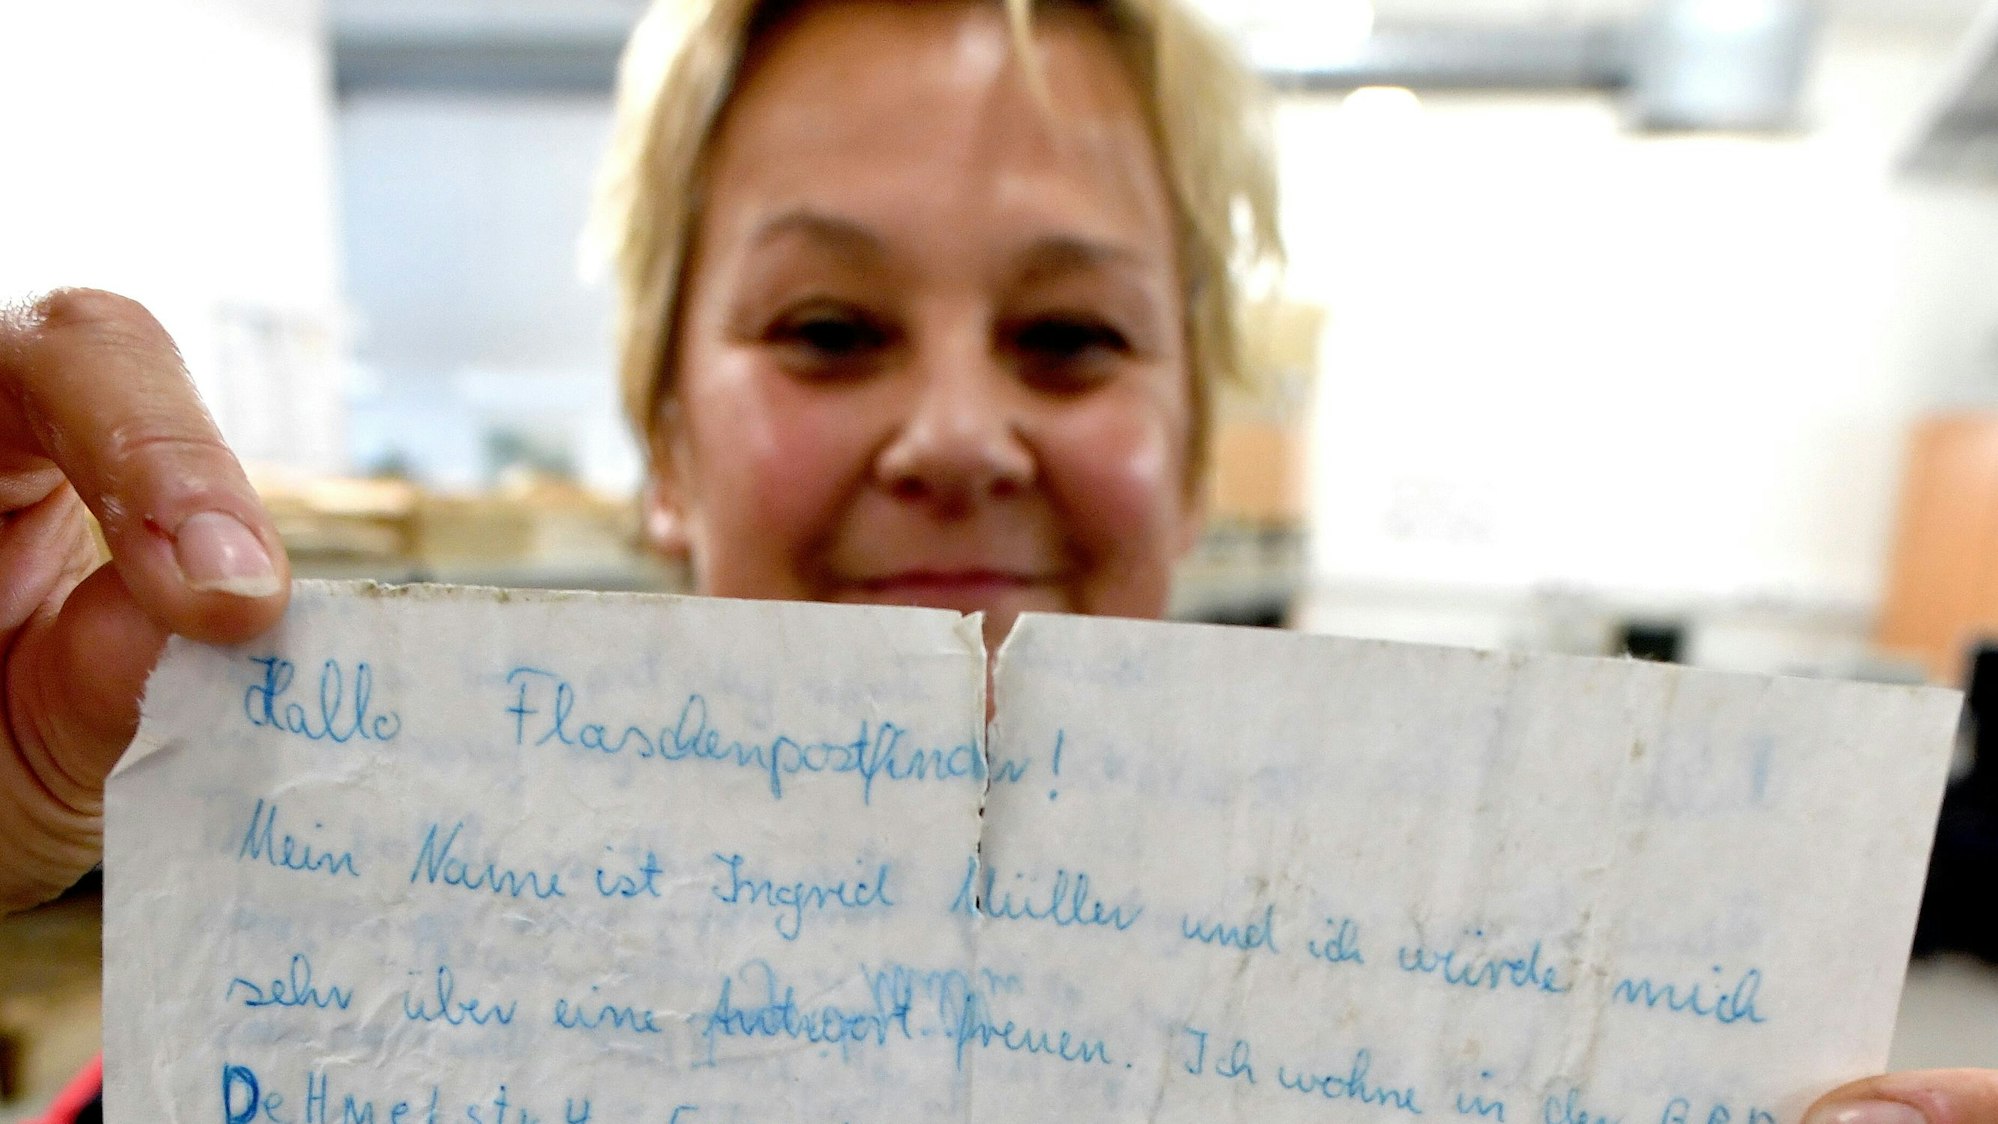 Hallo Flaschenpostfinder!
Mein Name ist Ingrid Müller und ich würde mich
sehr über eine Antwort freuen. Ich wohne in der BRD